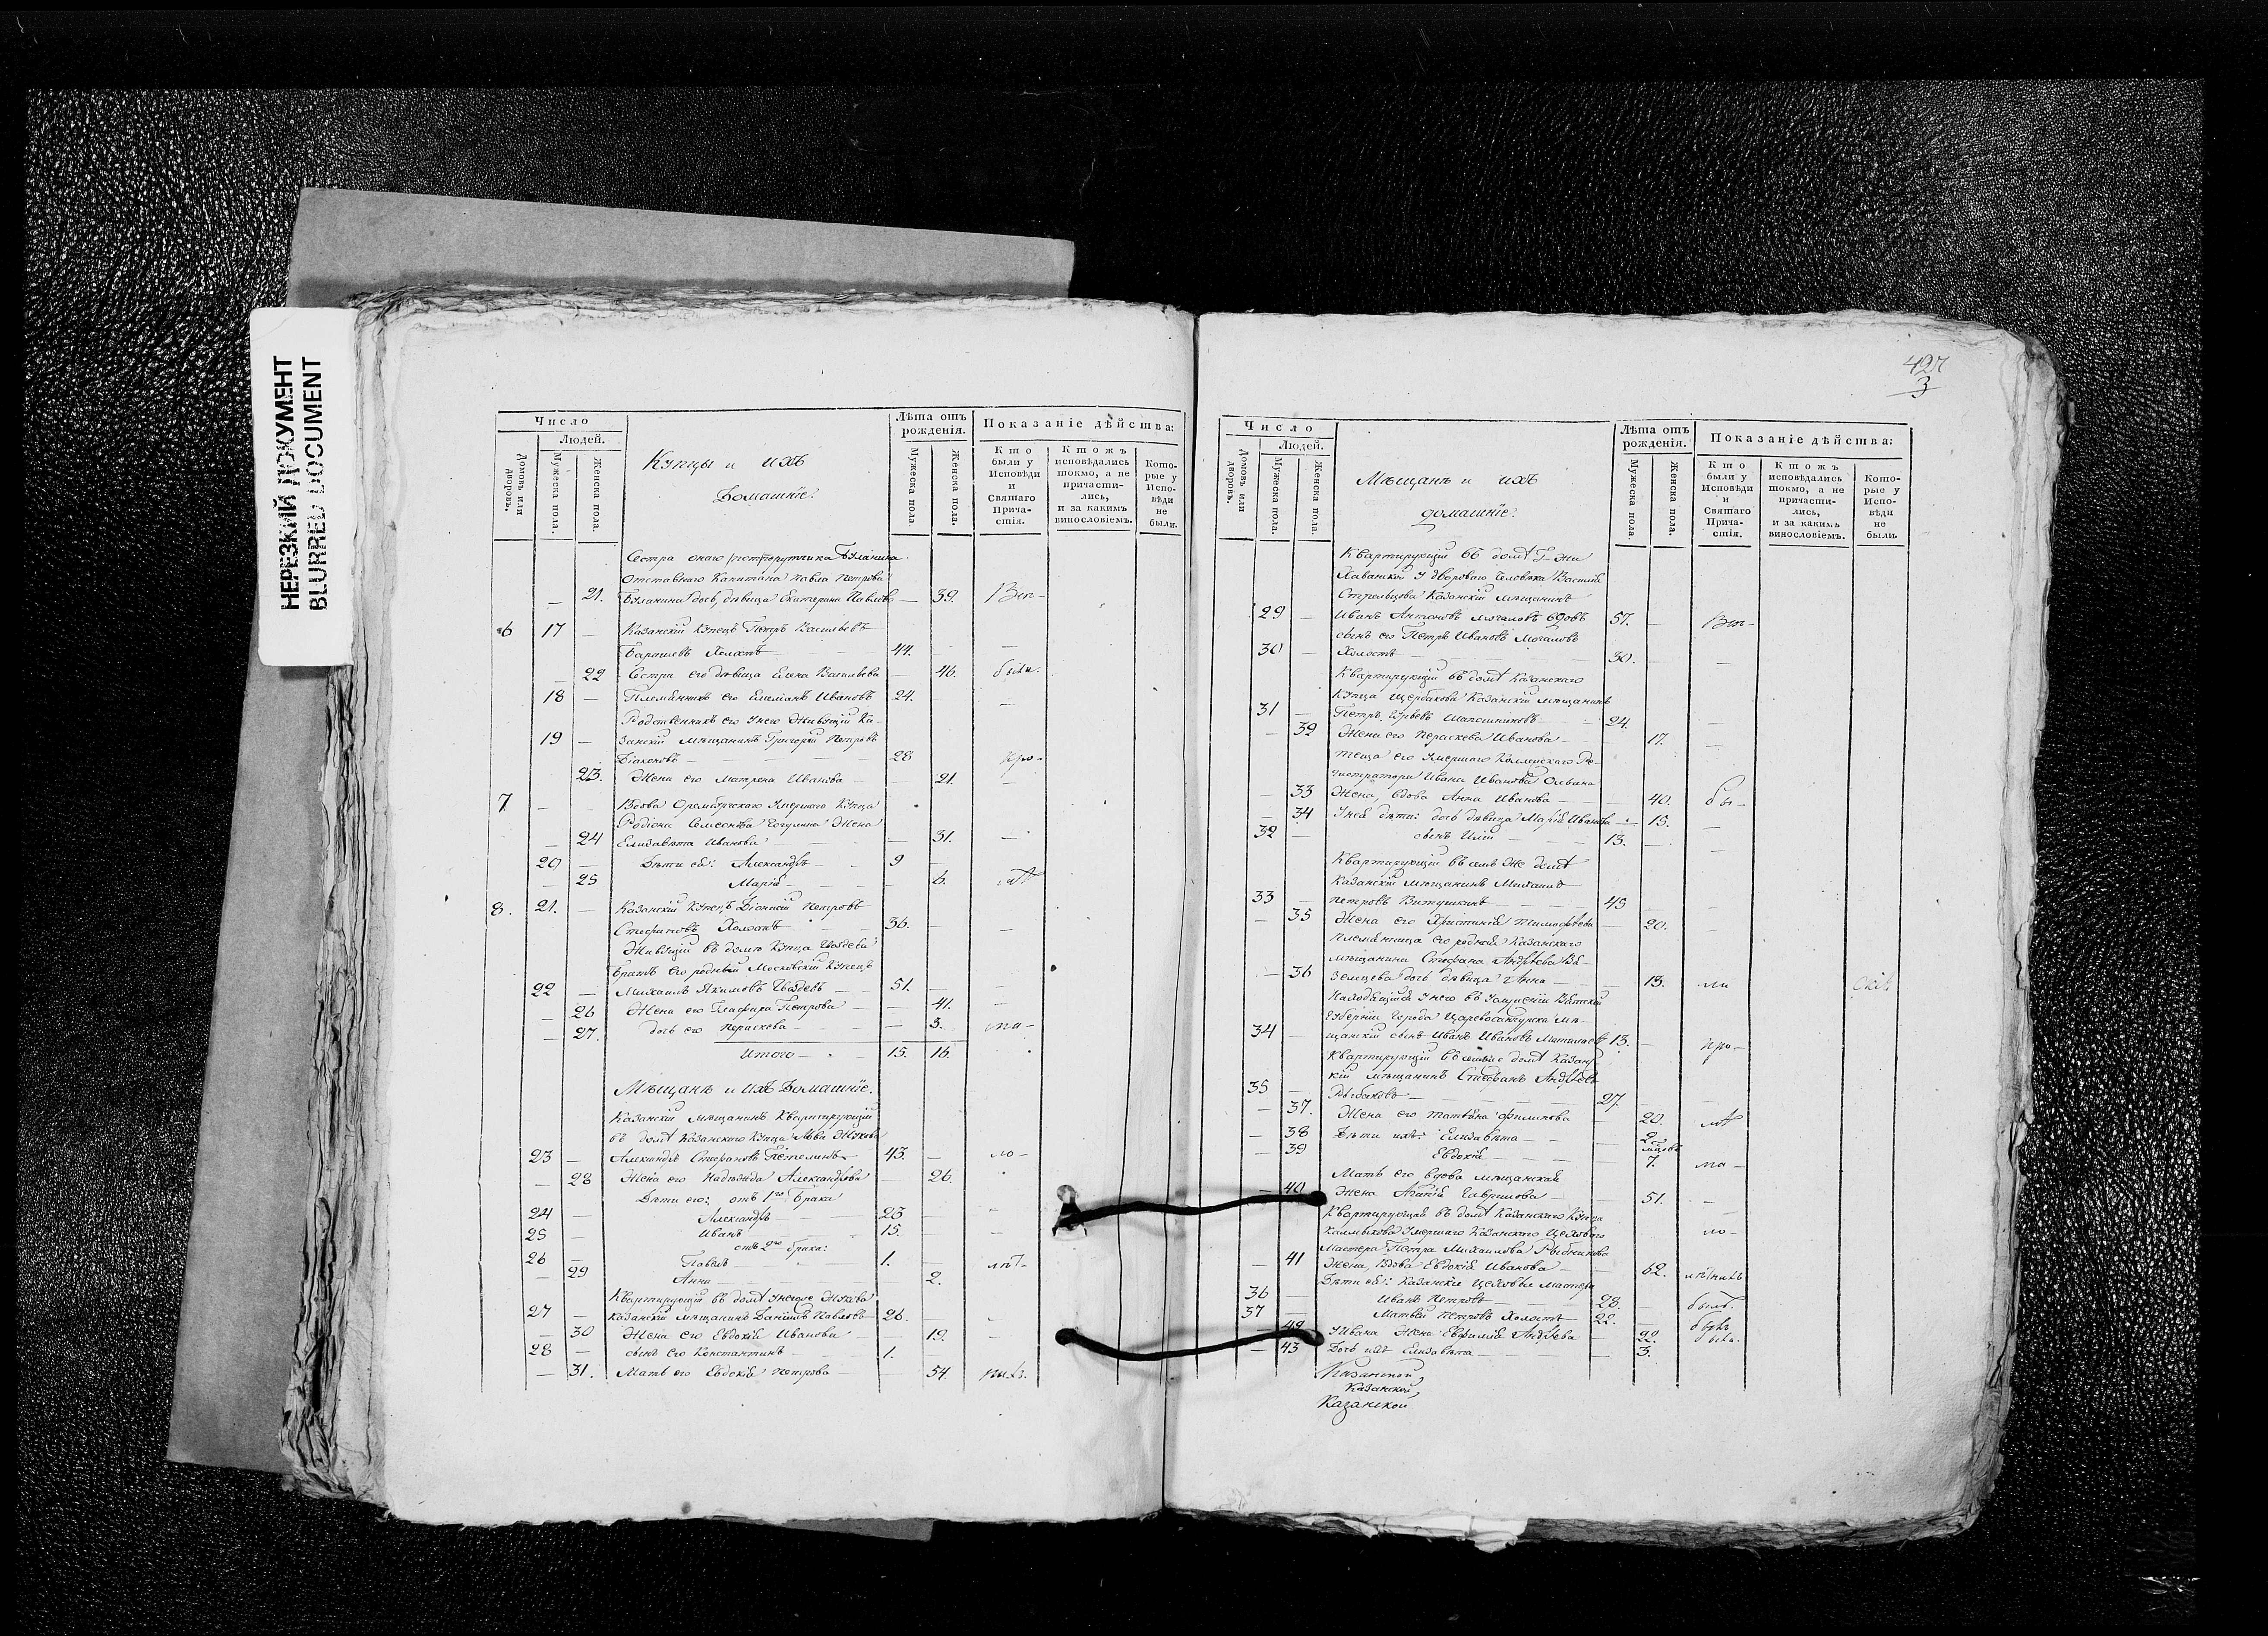 НЕРЕЗКИЙ ДОКУМЕНТ
BLURRED DOCUMENT
Число
Людей.
Домовъ или дворовъ.
Мужеска пола.
Женска пола.
Купцы и ихъ
Домашніе.
Лѣта отъ рожденія.
Мужеска пола.
Женска пола.
Показаніе дѣйства:
Кто были у Исповѣди и Святаго Причастія.
Ктожъ исповѣдались токмо, а не причастились, и за какимъ винословіемъ.
Которые у Исповѣди не были.
Сестра онаго Буланина
Отставнаго Капитана Павла Петрова
21. Буланина дочь, дѣвица Екатерина Павлова — 39.
6 17 — Казанскій Купецъ Петръ Васильевъ
Холостъ 44. —
— 22 Сестра его дѣвица Елена Васильева — 46. были.
18 — Племянникъ его Емелианъ Ивановъ 24.
Родственникъ его у него Живущій Ка-
19 — занскій мѣщанинъ Григорій Петровъ
Діаконовъ 28 про-
23. Жена его Матрена Иванова — 21.
7 — — Вдова умершаго Купца
Родіона Семенова Жена
— 24 Елизавета Иванова — 31.
20 — Дѣти ея: Александръ 9 —
— 25 Марія — 6.
8. 21. — Казанскій Купецъ Діонисій Петровъ
Стефановъ Холостъ 36. —
Живущій въ домѣ Купца Гвоздева
братъ его родный Московскій Купецъ
22 — Михаилъ Якимовъ Гвоздевъ 51. —
— 26 Жена его Глафира Петрова — 41.
— 27. дочь его Параскева — 3. ма-
Итого — 15. 16.
Мѣщанъ и Ихъ Домашніе.
Казанскій мѣщанинъ Квартирующій
въ домѣ Казанскаго Купца Льва Жукова
23 — Александръ Стефановъ 43. — ло-
— 28 Жена его Надежда Александрова — 26.
Дѣти его: отъ 1го брака
24 — Александръ 23
25 — Иванъ 15.
отъ 2го брака:
26 — Павелъ 1. — лѣт-
— 29 Анна — 2.
Квартирующій въ домѣ Жукова
27 — Казанскій мѣщанинъ Даніилъ Павловъ 26.
— 30 Жена его Евдокія Иванова — 19. —
28 — сынъ его Константинъ 1. —
— 31. Мать его Евдокія Петрова — 54.
427
3
Число
Людей.
Домовъ или дворовъ.
Мужеска пола.
Женска пола.
Мѣщанъ и ихъ
домашніе.
Лѣта отъ рожденія.
Мужеска пола.
Женска пола.
Показаніе дѣйства:
Кто были у Исповѣди и Святаго Причастія.
Ктожъ исповѣдались токмо, а не причастились, и за какимъ винословіемъ.
Которые у Исповѣди не были.
Квартирующій въ домѣ Г-жи
у двороваго человѣка Василія
Стрельцова Казанскій мѣщанинъ
29 — Иванъ Антоновъ Мочаловъ вдовъ 57. —
сынъ его Петръ Ивановъ Мочаловъ
30 — Холостъ 30. —
Квартирующій въ домѣ Казанскаго
Купца Щербакова Казанскій мѣщанинъ
31 — Петръ Шапошниковъ 24.
— 32 Жена его Параскева Иванова — 17.
теща его умершаго Коллежскаго Ре-
гистратора Ивана Иванова
— 33 Жена, вдова Анна Иванова — 40. бы-
— 34 У ней дѣти: дочь дѣвица Марія Иванова — 15.
32 — сынъ Илія 13. —
Квартирующій въ семъ же домѣ
Казанскій мѣщанинъ Михаилъ
33 — Петровъ 45 —
— 35 Жена его Христинія Тимофѣева — 20.
племянница его родная Казанскаго
мѣщанина Стефана Андрѣева Вя-
— 36 земцева дочь дѣвица Анна — 13. ли
Находящійся у него въ услуженіи Вятской
Губерніи города Царевосанчурска мѣ-
34 — щанскій сынъ Иванъ Ивановъ 13. — про-
Квартирующій въ домѣ Казан-
кій мѣщанинъ Стефанъ Андрѣевъ
35 — Рыбаковъ 27.
— 37. Жена его Татьяна Филипова — 20.
— 38 Дѣти ихъ: Елизавета — 2
— 39 Евдокія — 7. ма-
Мать его вдова мѣщанская
40 Жена Агапія Гаврилова — 51.
Квартирующая въ домѣ Казанскаго Купца
умершаго Казанскаго Цеховаго ло-
мастера Петра Михаилова
— 41 Жена, Вдова Евдокія Иванова — 62.
Дѣти ея: Казанскіе Цеховые мастера
36 — Иванъ Петровъ 28.
37 — Матвѣй Петровъ Холостъ 22.
42 У Ивана Жена Евфимія Андрѣева — 22.
— 43 Дочь ихъ Елизавета — 3.
Казанской
Казанской
Казанской